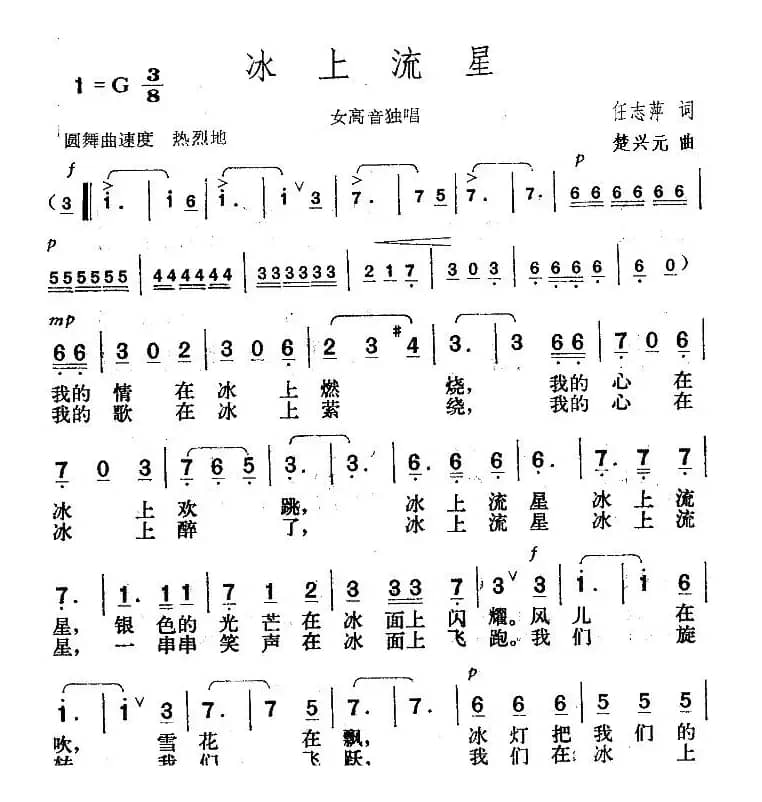 冰上流星
1=G 3/8
女高音独唱
圆舞曲速度 热烈地
任志萍 词
楚兴元 曲
f p
(3 ‖ i. | i 6 | i. | i 3 | 7. | 7 5 | 7. | 7. | 666666 |
p
555555 | 444444 | 333333 | 2 1 7 | 3 0 3 | 6 6 6 6 | 6 0 )
mp
6 6 | 3 0 2 | 3 0 6 | 2 3 #4 | 3. | 3 6 6 | 7 0 6 |
我的 情 在 冰 上 燃 烧, 我的 心 在
我的 歌 在 冰 上 萦 绕, 我的 心 在
7 0 3 | 7 6 5 | 3. | 3. | 6. 6 6 | 6. | 7. 7 7 |
冰 上 欢 跳, 冰 上 流 星 冰 上 流
冰 上 醉 了, 冰 上 流 星 冰 上 流
f
7. | 1. 1 1 | 7 1 2 | 3 3 3 7 | 3 3 | i. | i 6 |
星, 银 色的 光 芒 在 冰 面上 闪 耀。风 儿 在
星, 一 串串 笑 声 在 冰 面上 飞 跑。我 们 旋
p
i. | i 3 | 7. | 7 5 | 7. | 7. | 6 6 6 | 5 5 5 |
吹, 雪 花 在 飘, 冰 灯 把 我 们 的
转, 我 们 飞 跃, 我 们 在 冰 上